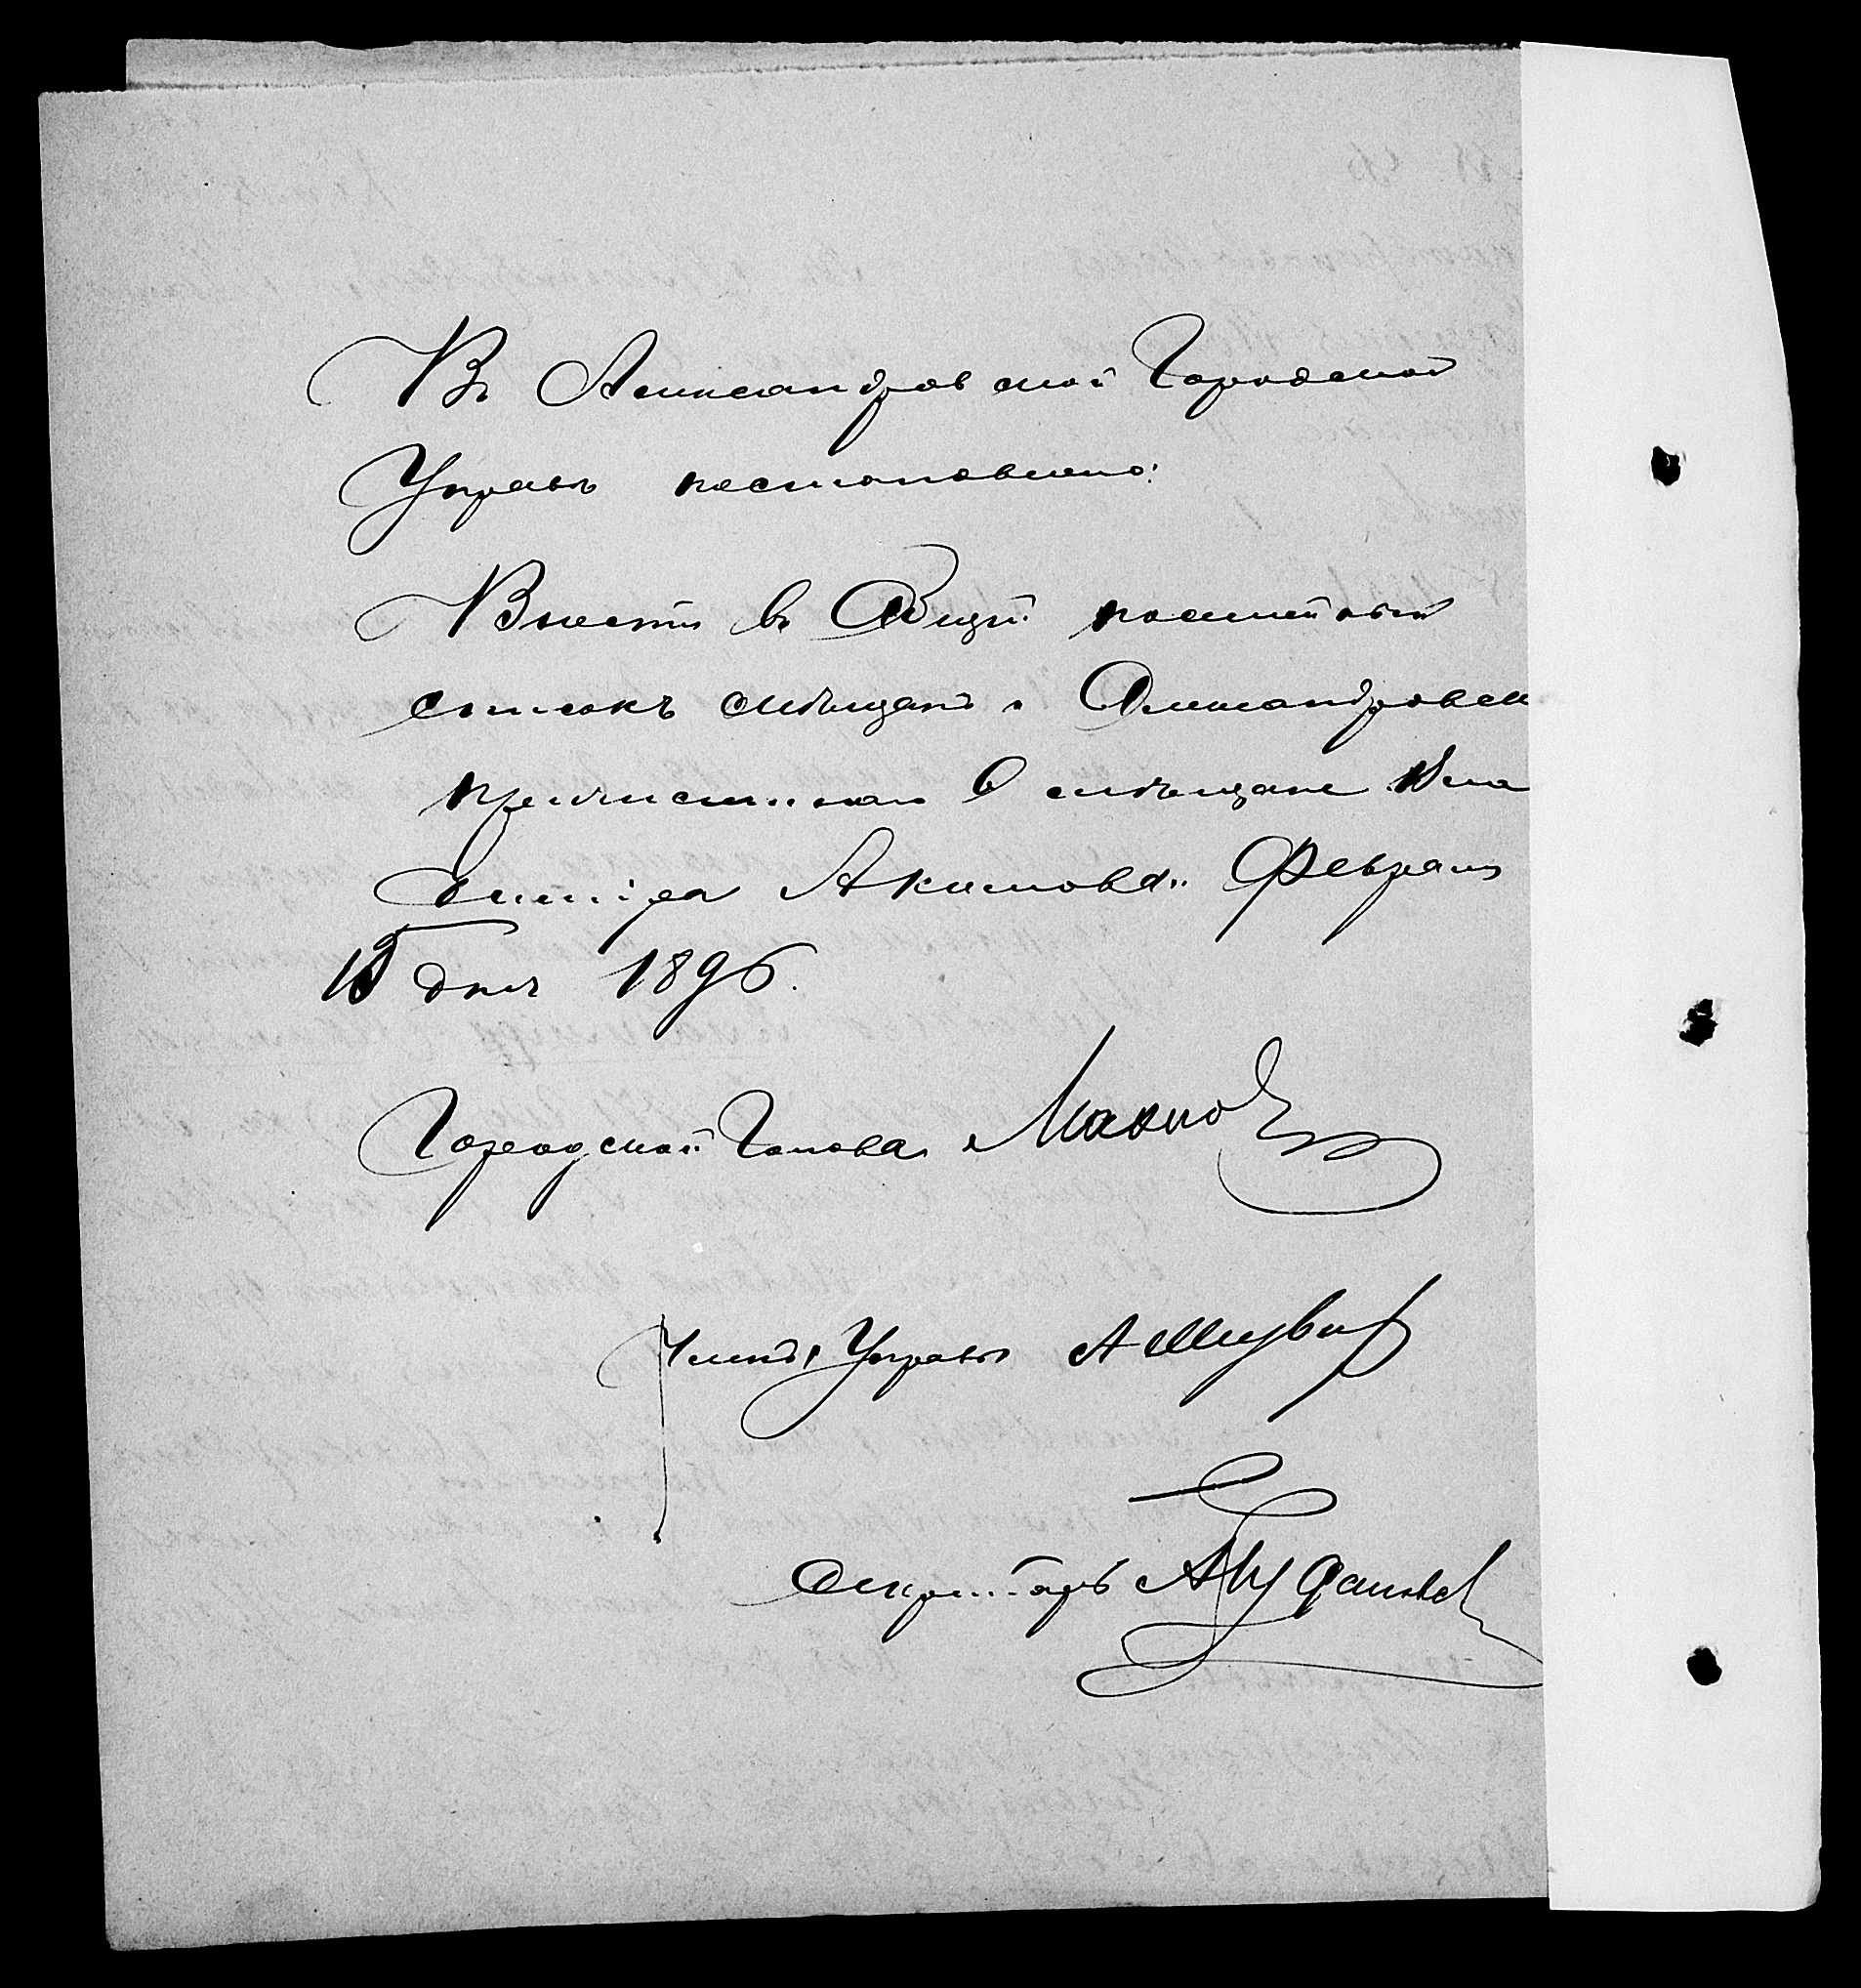 Въ Александровской Городской
Управѣ постановлено:
Внести въ Общій посемейный
списокъ мѣщанъ г. Александровск
причисленнаго въ мѣщане Вла
диміра Акимова. Февраля
15 дня 1896.
Городской Голова
Членъ Управы
Секретарь